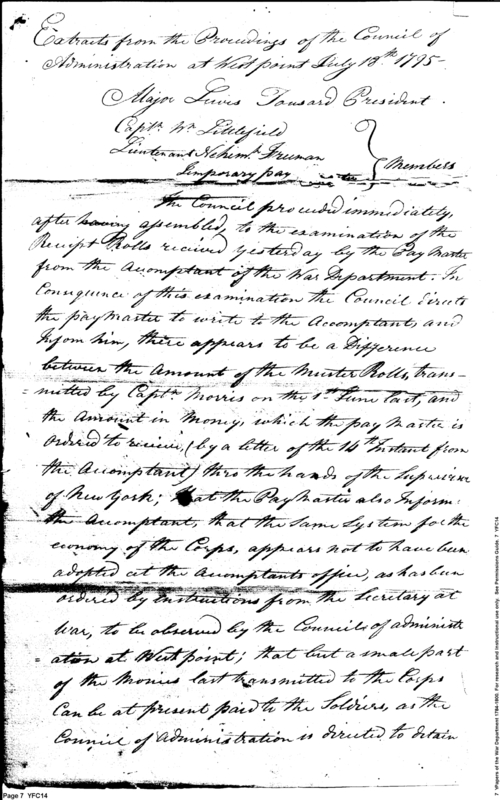 Extracts from the Proceedings of the Council of
Administration at West point July 18th 1795
Major Lewis Tousard President.
Captn. Wm Littlefield
Lieutenant Nehemh. Freeman
Temporary pay Master
Members
The Council proceeded immediately,
after having assembled, to the examination of the
Receipt Rolls received yesterday by the Pay Master
from the Accomptant of the War Department. In
Consequence of this examination the Council directs
the pay Master to write to the Accomptant, and
Inform him, there appears to be a Difference
between the Amount of the Muster Rolls, trans-
= mitted by Captn. Morris on the 1st June last, and
the Amount in Money, which the pay Master is
ordered to receive, (by a letter of the 14th Instant from
the Accomptant) thro the hands of the Supervisor
of New York; that the Pay Master also Inform
the Accomptant, that the Same System for the
economy of the Corps, appears not to have been
adopted at the Accomptants office, as has been
ordered by Instructions from the Secretary at
War, to be observed by the Councils of administr
= ation at West point; that but a small part
of the Monies last transmitted to the Corps
Can be at present paid to the Soldiers, as the
Council of Administration is directed to detain
Page 7 YFC14
7 "Papers of the War Department 1784-1800. For research and instructional use only. See Permissions Guide. 7 YFC14